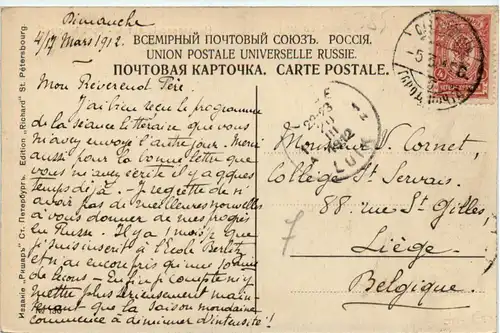 Dimanche
4/17 Mars 1912.
ВСЕМІРНЫЙ ПОЧТОВЫЙ СОЮЗЪ. РОССІЯ.
UNION POSTALE UNIVERSELLE RUSSIE.
ПОЧТОВАЯ КАРТОЧКА. CARTE POSTALE.
Mon Révérend Père.
J'ai bien reçu le programme
de la séance littéraire que vous
m'avez envoyé l'autre jour. Merci
aussi pour la bonne lettre que
vous m'avez écrite il y a qques
temps déjà. Je regrette de n'
avoir pas de meilleures nouvelles
à vous donner de mes progrès
en Russe. Il y a 1 mois que
je suis inscrit à l'Ecole Berlitz
et n'ai encore pris qu'une
de leçons - Enfin je compte m'y
mettre plus sérieusement main-
tenant que la saison mondaine
commence à diminuer d'intensité!
Monsieur S. Cornet,
Collège St Servais.
88 rue St Gilles,
Liège.
Belgique.
7
1912
Изданіе „Ришаръ" Ст. Петербургъ. Edition „Richard" St. Pétersbourg.